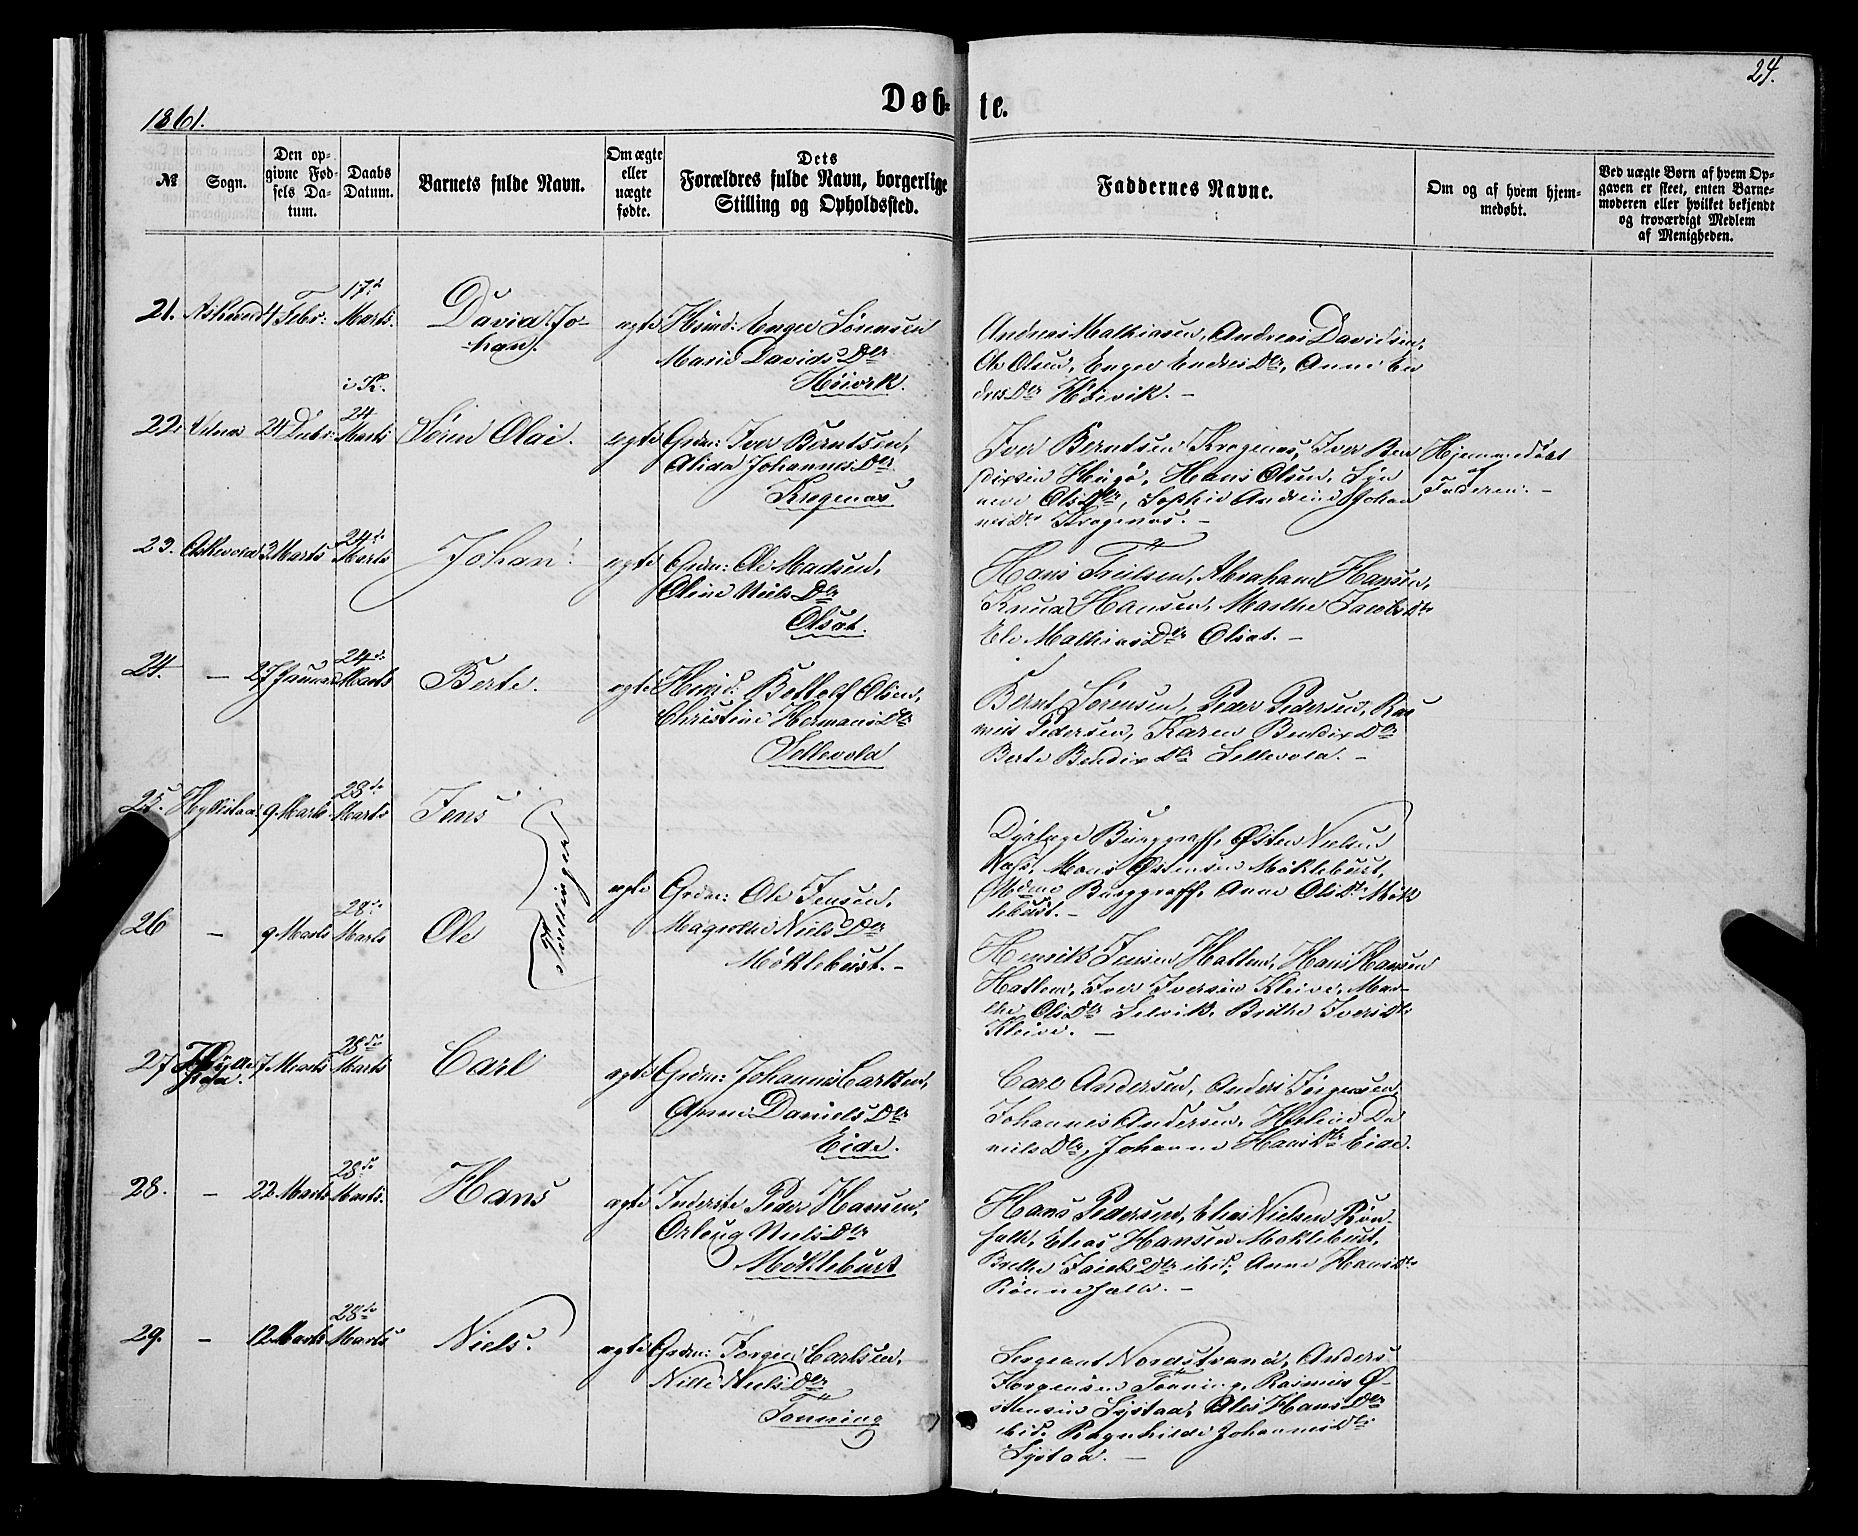 24.
1861.
Døb- te.
№
Sogn.
Den op-
givne Fød-
sels Da-
tum.
Daabs
Datum.
Barnets fulde Navn.
Om ægte
eller
uægte
fødte.
Dets
Forældres fulde Navn, borgerlige
Stilling og Opholdssted.
Faddernes Navne.
Om og af hvem hjem-
medøbt.
Ved uægte Børn af hvem Op-
gaven er skeet, enten Barne-
moderen eller hvilket bekjendt
og troværdigt Medlem
af Menigheden.
21. Askevold 4 Febr: 17de Marts. David Jo-
han. ægte Huusmd: Enger Sørensen
Marie Davids Dtr
Høivik.
Andreas Mathiasen, Andreas Davidsen,
Ole Olsen, Enger Endres Dtr, Anne En
dres Dtr Høivik. -
i K.
22. Vilnæs 24 Febr: 24 Marts Søren Olai. ægte Grdm: Iver Berntsen,
Alida Johannes Dtr
Kragenæs
Iver Berntsen Kragenæs, Iver Ben
dixen Hugø, Hans Olsen,
Ols Dtr, Sophie Andrine Johan
nes Dtr Kragenæs. -
Hjemmedøbt
af
Faderen. -
23. Askevold 3 Marts 24de Marts Johan. ægte Grdm: Ole Madsen,
Oline Niels Dtr
Olset.
Hans Trulsen, Abraham Hansen,
Knud Hansen, Marthe Jacobs Dtr
Eli Mathias Dtr Olset. -
24. - 27 Januar 24de Marts Berte. ægte Huusmd: Bottolf Olsen,
Christine Hermans Dtr
Sellevold
Bernt Sørensen, Peder Pedersen, Ras
mus Pedersen, Karen Bendix Dtr
Berte Bendix Dtr Sellevold. -
25. Hyllestad 9 Marts 28de Marts Jens
Tvillinger
Dyrlæge Burggraff, Østen Nielsen
Mons Østensen Møklebust,
Mdme Burggraff, Anne Ols Dtr Møk
lebust. -
26 - 9 Marts 28de Marts Ole
ægte Grdm: Ole Jensen,
Magrethe Niels Dtr
Møklebust. -
Henrik Jensen Hatlem, Hans Hansen
Hatlem, Iver Iversen Kleive, Mar-
the Ols Dtr Leirvik, Brithe Ivers Dtr
Kleive. -
27 Hylle
stad. 7 Marts 28de Marts Carl ægte Grdm: Johannes Carlsen,
Anne Daniels Dtr
Eide.
Carl Andersen, Anders Jørgensen,
Johannes Andersen, Helene Da
niels Dtr, Johanne Hans Dtr Eide.
28. - 22 Marts 28de Marts. Hans ægte Inderste Peder Hansen,
Orlaug Niels Dtr
Møklebust
Hans Pedersen, Elias Nielsen Røn-
falk, Elias Hansen Møklebust,
Brithe Jacobs Dtr ibid, Anne Hans Dtr
29. - 12 Marts 28de Marts Niels. ægte Grdm: Jørgen Carlsen,
Nille Niels Dtr
Tonning
Sergeant Nordstrand, Anders
Jørgensen Tonning, Rasmus Ø-
stensen Systad, Hans Dtr
ibid. Ragnhilde Johannes Dtr
Systad. -